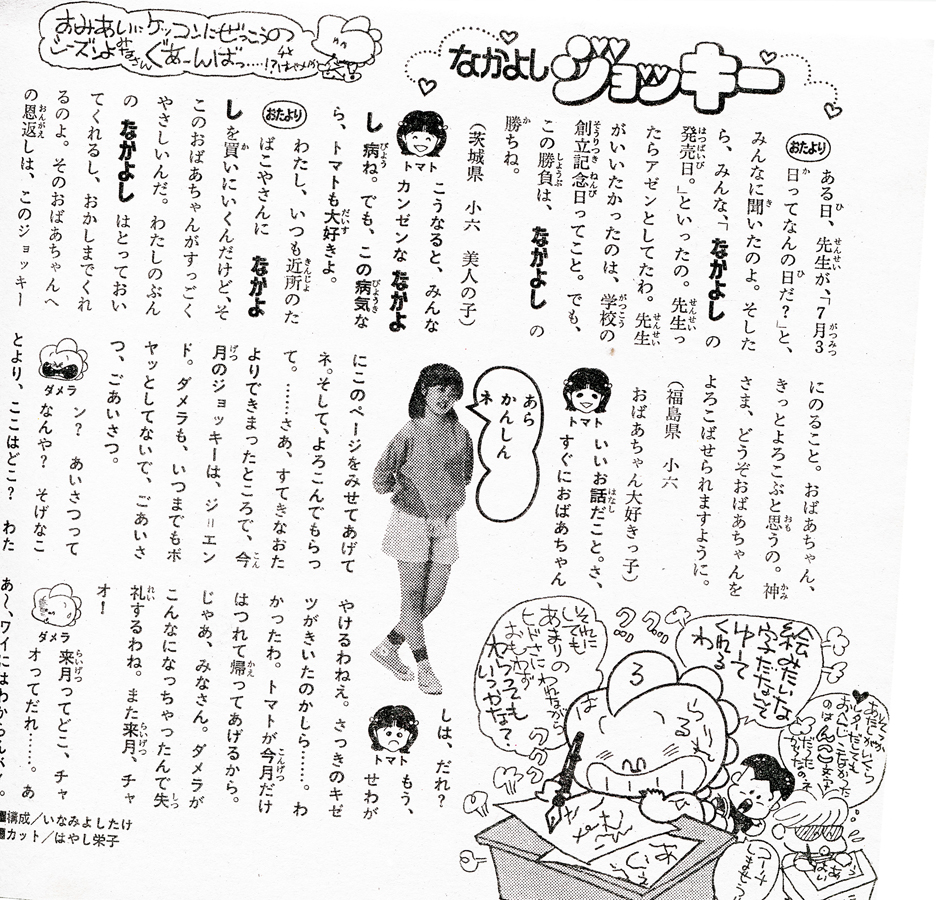 おみあいにケッコンにぜっこうの
シーズンよみなさん
ぐぁーんばっ……!?
なかよし
ジョッキー
おたより
ある日、先生が、「7月3
日ってなんの日だ？」と、
みんなに聞いたのよ。そした
ら、みんな、「なかよしの
発売日。」といったの。先生っ
たらアゼンとしてたわ。先生
がいいたかったのは、学校の
創立記念日ってこと。でも、
この勝負は、なかよしの
勝ちね。
（茨城県　小六　美人の子）
トマト
こうなると、みんな
カンゼンななかよ
し病ね。でも、この病気な
ら、トマトも大好きよ。
おたより
わたし、いつも近所のた
ばこやさんになかよ
しを買いにいくんだけど、そ
このおばあちゃんがすっごく
やさしいんだ。わたしのぶん
のなかよしはとっておい
てくれるし、おかしまでくれ
るのよ。そのおばあちゃんへ
の恩返しは、このジョッキー
にのること。おばあちゃん、
きっとよろこぶと思うの。神
さま、どうぞおばあちゃんを
よろこばせられますように。
（福島県　小六
おばあちゃん大好きっ子）
トマト
いいお話だこと。さ、
すぐにおばあちゃん
あら
かんしん
ネ
にこのページをみせてあげて
ネ。そして、よろこんでもらっ
て。……さあ、すてきなおた
よりできまったところで、今
月のジョッキーは、ジ・エン
ド。ダメラも、いつまでもボ
ヤッとしてないで、ごあいさ
つ、ごあいさつ。
ダメラ
ン？　あいさつって
なんや？　そげなこ
とより、ここはどこ？　わた
しは、だれ？
トマト
もう、
せわが
やけるわねえ。さっきのキゼ
ツがきいたのかしら……。わ
かったわ。トマトが今月だけ
はつれて帰ってあげるから。
じゃあ、みなさん。ダメラが
こんなになっちゃったんで失
礼するわね。また来月、チャ
オ！
ダメラ
来月ってどこ、チャ
オってだれ……。あ
あ～、ワイにはわからんバイ。
構成／いなみよしたけ
カット／はやし栄子
絵みたいな
字だなんて
ゆーて
くれる
わ
それに
しても
あまりの
ヒドさにわれながら
おもわず
わらっても
いっかな？